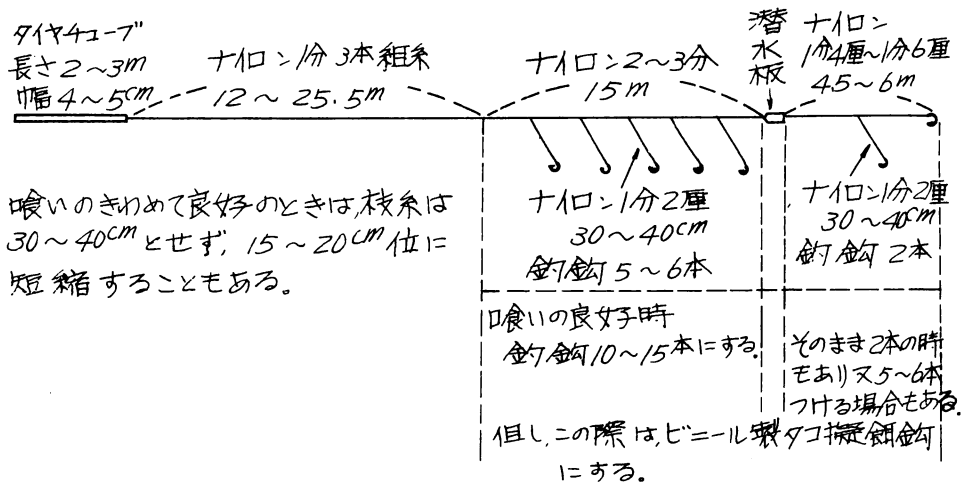 タイヤチューブ
長さ2〜3m
幅4〜5cm
ナイロン1分3本組糸
12〜25.5m
ナイロン2〜3分
15m
潜水板
ナイロン
1分4厘〜1分6厘
4.5〜6m
喰いのきわめて良好のときは,枝糸は
30〜40cmとせず,15〜20cm位に
短縮することもある。
ナイロン1分2厘
30〜40cm
釣鈎5〜6本
ナイロン1分2厘
30〜40cm
釣鈎2本
喰いの良好時
釣鈎10〜15本にする。
そのまま2本の時
もあり又5〜6本
つける場合もある。
但し,この際は,ビニール製タコ擬餌鈎
にする。